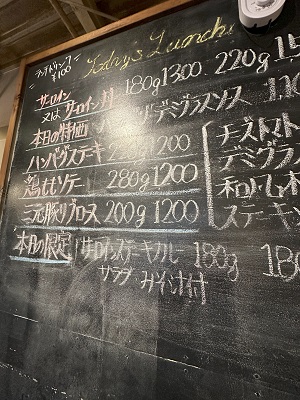 ランチドリンク
¥100
Today's Lunch
サーロイン
又は サーロイン丼 180g 1300 220g
デミグラスソース
本日の特価
ハンバーグステーキ 1200
鳥ももソテー 280g 1200
三元豚リブロース 200g 1200
チーズトマト
デミグラ
和風
ステーキ
本日の限定 サーロインステーキカレー 180g
サラダ・みそ汁付